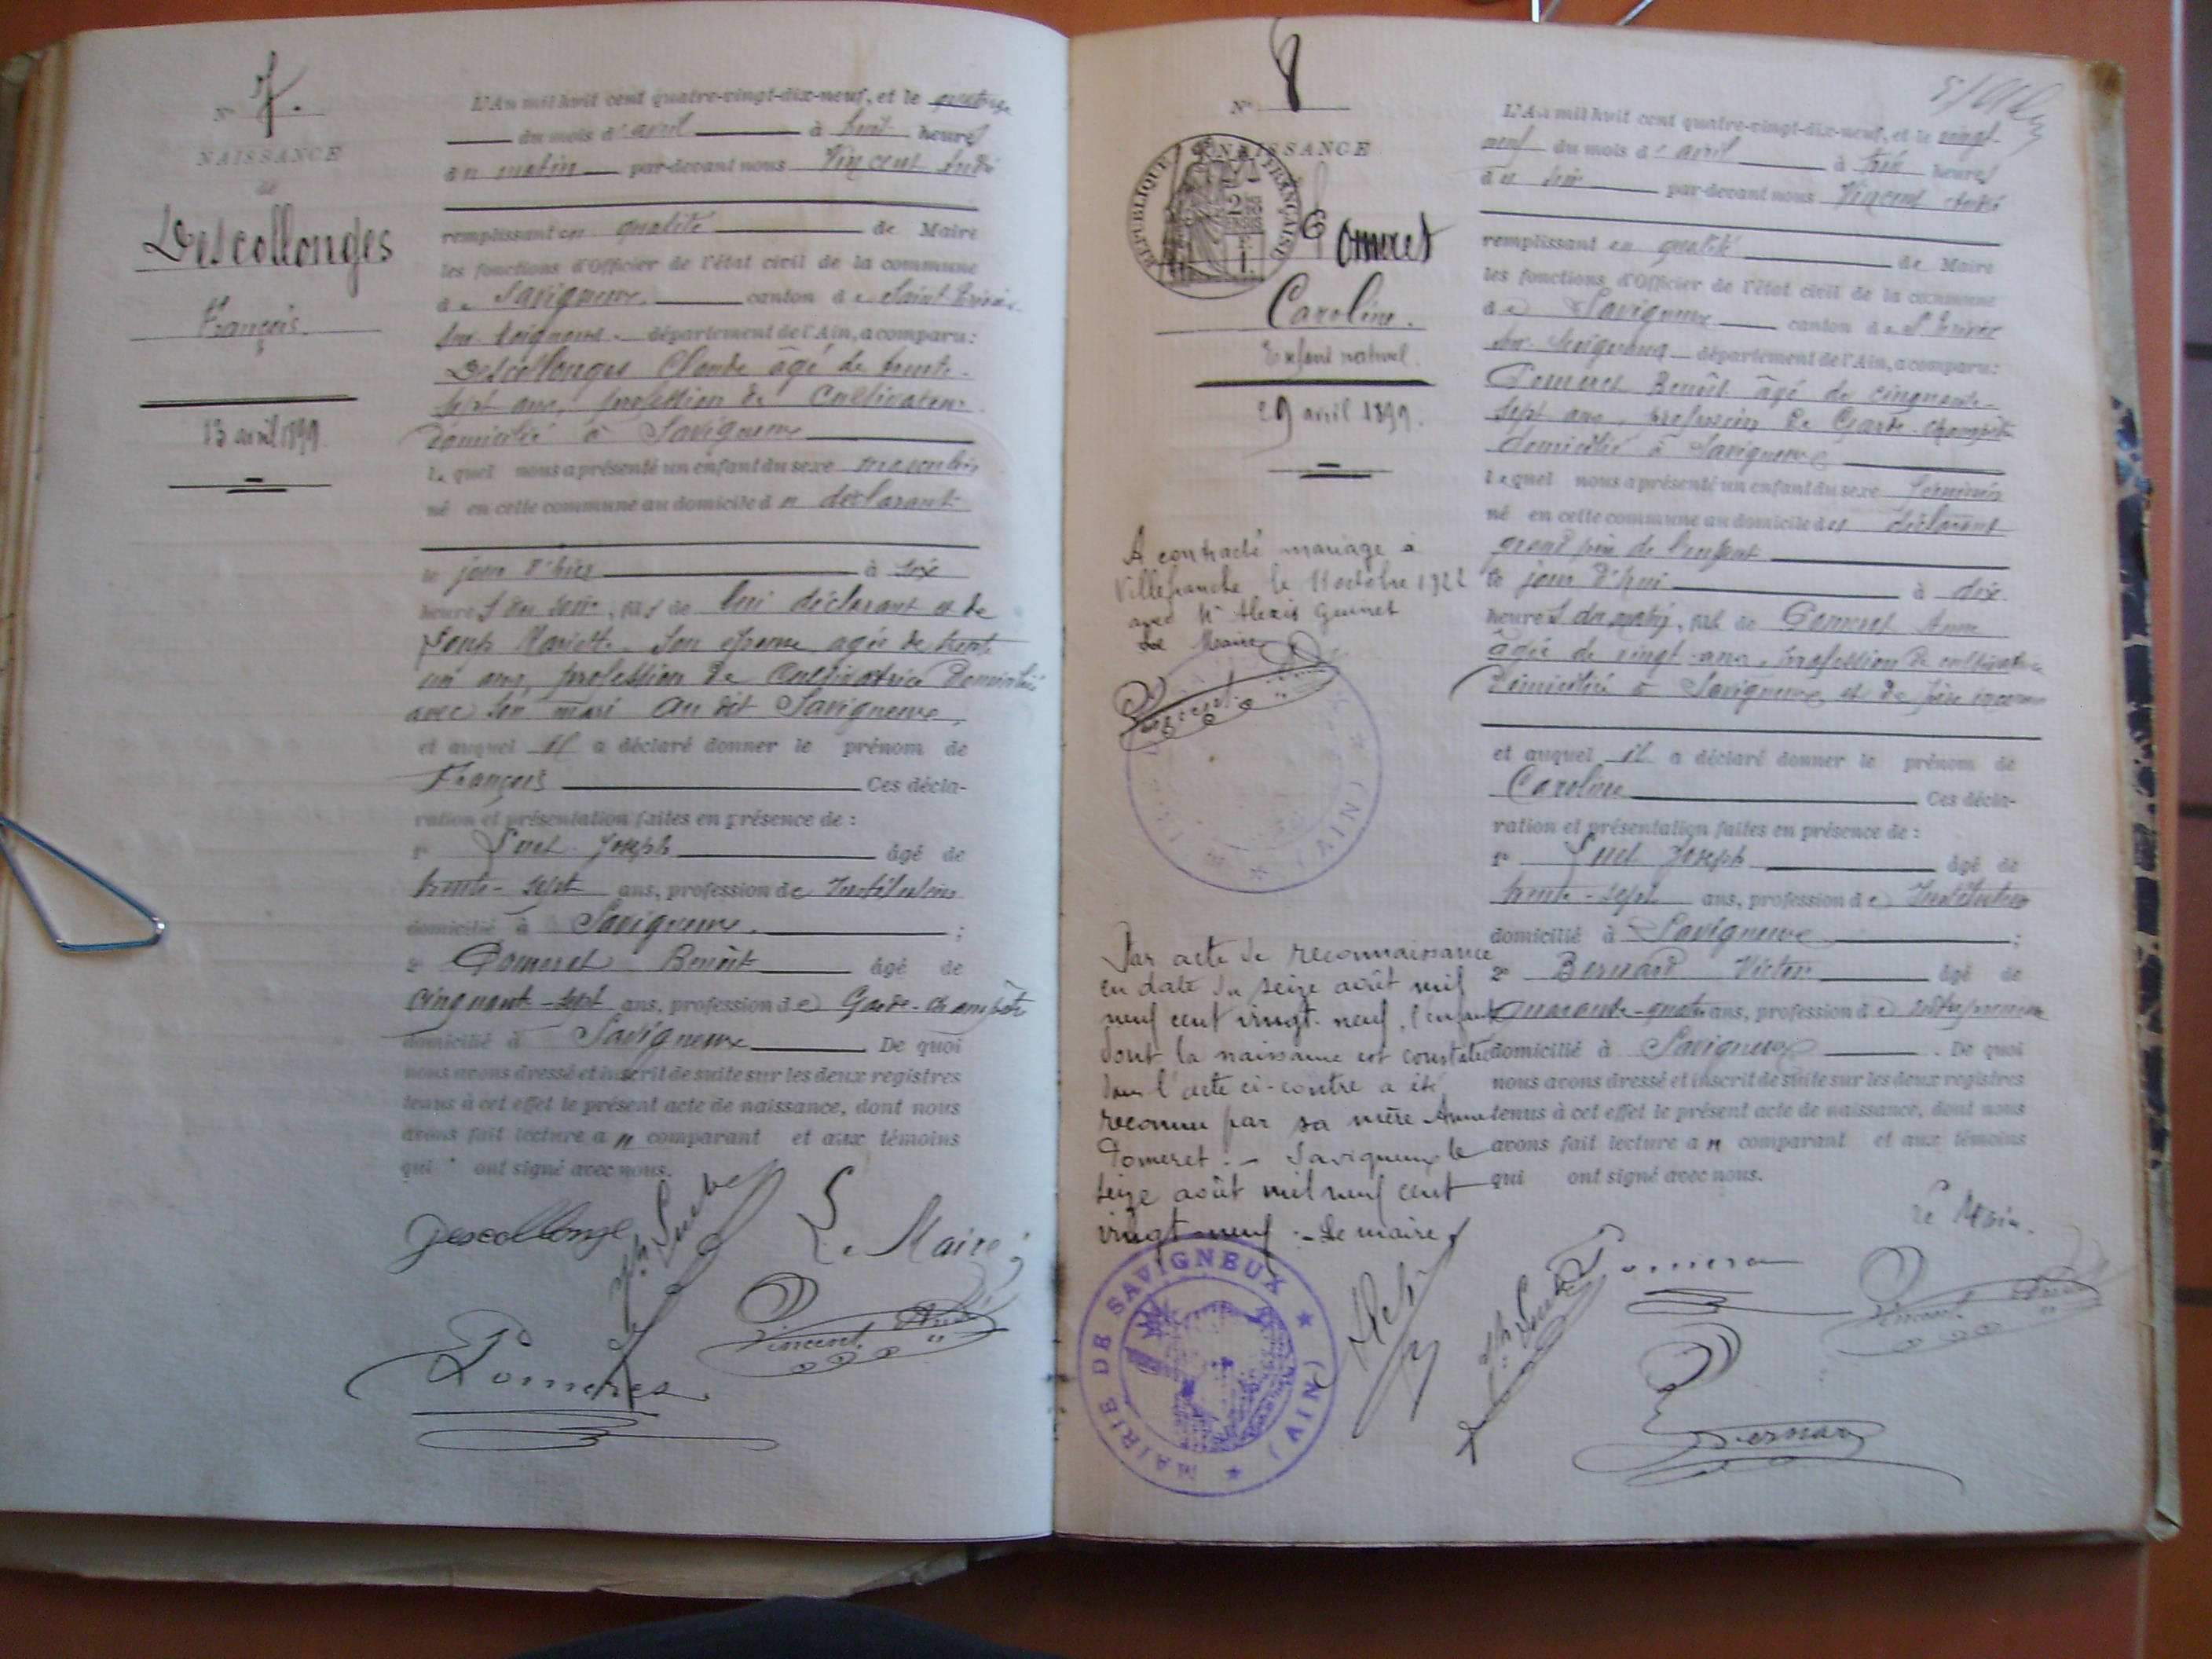 N° 7.
NAISSANCE
de
Descollonges
François
13 avril 1899
L'An mil huit cent quatre-vingt-dix-neuf, et le quatorze
du mois d'avril à huit heures
du matin par-devant nous Vincent André
remplissant en qualité de Maire
les fonctions d'Officier de l'état civil de la commune
de Savigneux canton de Saint Trivier
sur Moignans département de l'Ain, a comparu :
Descollonges Claude âgé de trente-
sept ans, profession de Cultivateur
domicilié à Savigneux
lequel nous a présenté un enfant du sexe masculin
né en cette commune au domicile du déclarant
le jour d'hier à six
heures du soir, fils de lui déclarant et de
Mariette son épouse agée de trente
un ans, profession de Cultivatrice domiciliée
avec son mari au dit Savigneux,
et auquel il a déclaré donner le prénom de
François Ces décla-
ration et présentation faites en présence de :
1° Joseph âgé de
trente-sept ans, profession de Instituteur
domicilié à Savigneux ;
2° Pomeret Benoît âgé de
cinquante-sept ans, profession de Garde-champêtre
domicilié à Savigneux De quoi
nous avons dressé et inscrit de suite sur les deux registres
tenus à cet effet le présent acte de naissance, dont nous
avons fait lecture au comparant et aux témoins
qui ont signé avec nous.
Descollonge
Le Maire,
Pomeret
Vincent André
N° 8
NAISSANCE
RÉPUBLIQUE FRANÇAISE
Pomeret
Caroline.
Enfant naturel.
29 avril 1899.
A contracté mariage à
Villefranche le 11 octobre 1922
avec Mr Alexis Guinet
Le Maire
Vincent
(AIN)
Par acte de reconnaissance
en date du seize août mil
neuf cent vingt-neuf, l'enfant
dont la naissance est constatée
dans l'acte ci-contre a été
reconnu par sa mère Anne
Pomeret. - Savigneux le
seize août mil neuf cent
vingt-neuf - Le maire,
MAIRIE DE SAVIGNEUX (AIN)
L'An mil huit cent quatre-vingt-dix-neuf, et le vingt-
neuf du mois d'avril à trois heures
du soir par-devant nous Vincent André
remplissant en qualité de Maire
les fonctions d'Officier de l'état civil de la commune
de Savigneux canton de St Trivier
sur Moignans département de l'Ain, a comparu :
Pomeret Benoît âgé de cinquante-
sept ans, profession de Garde-champêtre
domicilié à Savigneux
lequel nous a présenté un enfant du sexe féminin
né en cette commune au domicile du déclarant
grand père de l'enfant
le jour d'hui à dix
heures du matin, fille de Pomeret Anne
âgée de vingt ans, profession de cultivatrice
domiciliée à Savigneux et de père inconnu
et auquel il a déclaré donner le prénom de
Caroline Ces décla-
ration et présentation faites en présence de :
1° Joseph âgé de
trente-sept ans, profession de Instituteur
domicilié à Savigneux ;
2° Bernard Victor âgé de
quarante-quatre ans, profession de
domicilié à Savigneux . De quoi
nous avons dressé et inscrit de suite sur les deux registres
tenus à cet effet le présent acte de naissance, dont nous
avons fait lecture au comparant et aux témoins
qui ont signé avec nous.
Le Maire.
Pomeret
Vincent André
Bernard